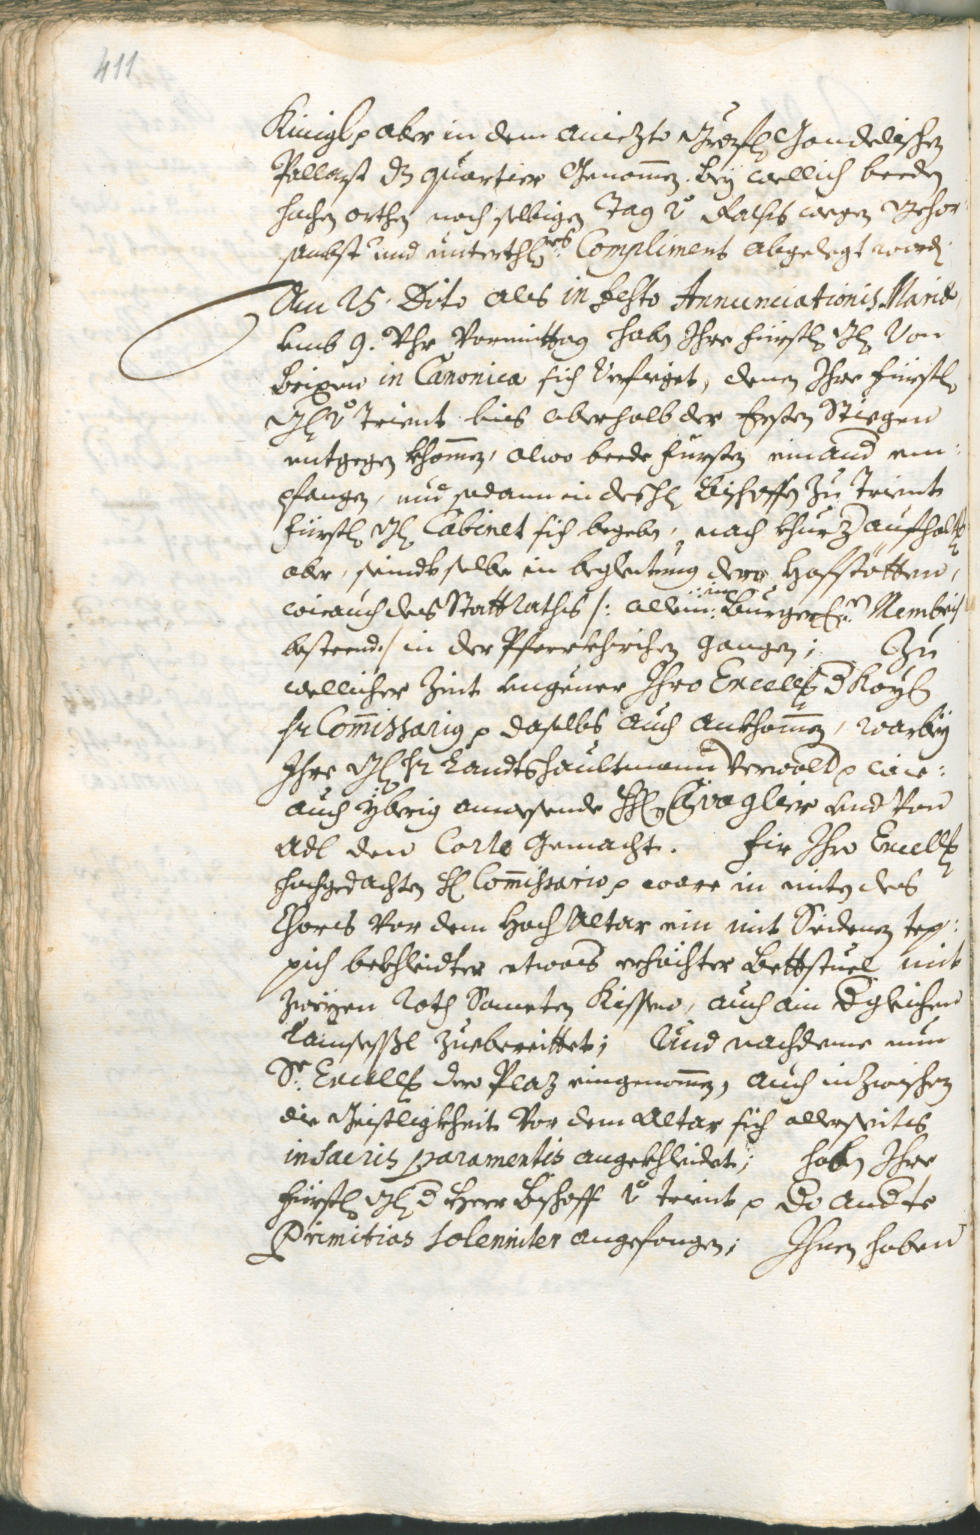 411
Künigl p aber in dem aniezto Gräfl Handelischen
Pallast dz quartier Genommen. bey wellich beeden
hochen orthen noch selbigen Tag v Raths wegen gehor
sambst und unterthes Compliment abgelegt worden
Am 25. Dito als in festo Annunciationis Mariæ
umb 9. Uhr Vormittag haben Ihre fürstl Gl Von
Brixen in Canonica sich Verfieget, denen Ihre fürstl
Gl v Trient bis oberhalb der Ersten Stiegen
entgegen khommen, alwo beede fürsten einand em:
pfangen, und sodann in des H Bischoffen zu Trient
fürstl Gl Cabinet sich begeben, nach khurz aufhalten
aber, seindt selbe in beglaitung dero Hoffstätten,
wie auch des Statt Raths /: allein: in Burgerl Membris
besteend:/ in der Pfarrkhirchen gangen; Zu
wellicher Zeit ungener Ihro Excellz d Kayl
hr Commissarius p daselbs auch ankhommen, warbey
Ihre Gl hr Landtshaubtmann Verwalt p wie:
auch yberig anwesende HH Cavaglier und Von
Adl den Corte Gemacht. Fir Ihro Excellz
hochgedachten H Commissario p ware in miten des
Chores Vor dem Hoch Altar ein mit Seidenen tep:
pich bekhleidter etwas erhöchter Bettstuel mit
zweyen Roth Sameten Kissen, auch ain dgleichen
Lainsessl zueberaittet; Und nachdeme nun
Sr. Excellz dero Plaz eingenommen, auch inzwischen
die Geistligkheit Vor dem Altar sich allerseits
in Sacris paramentis angekhleidet; haben Ihre
fürstl Gl d Herr Bischoff v Trient p Do Andte
Primitias solenniter angefangen; Ihnen haben